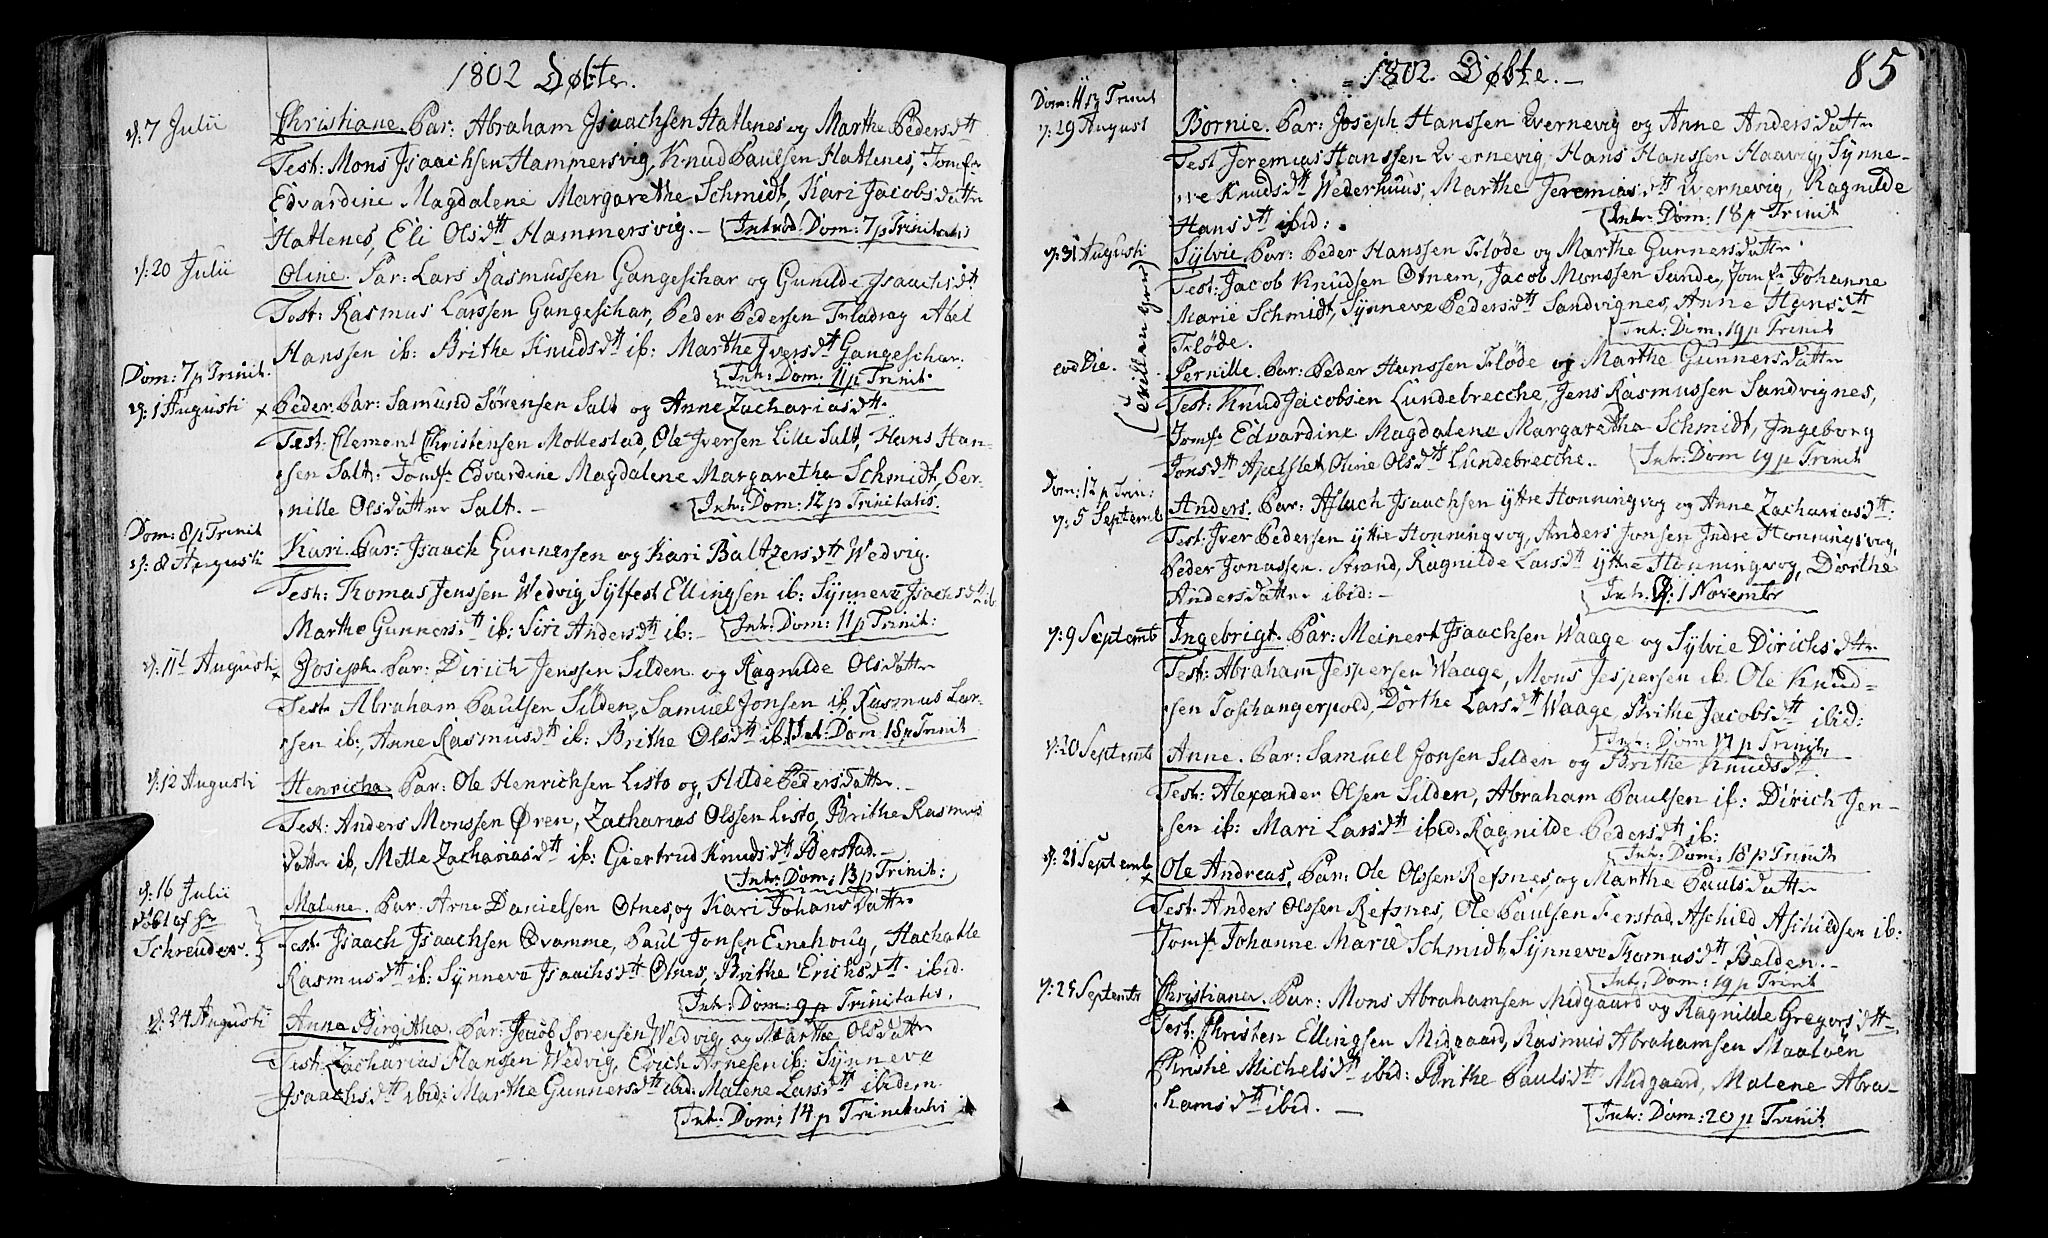 1802 Døbte.
d: 7 Julii
Christiane. Par: Abraham Jsaachsen Hatlenes og Marthe Pedersdtt
Test: Mons Jsaachsen Hammersvig, Knud Paulsen Hatlenes, Jomfr
Edvardine Magdalene Margarethe Schmidt, Kari Jacobsdattr
Hatlenes, Eli Olsdtt Hammersvig. - Introd: Dom: 7 p Trinitatis
d: 20 Julii
Oline. Par: Lars Rasmussen Gangeschar og Gunilde Jsaachsdtt
Test: Rasmus Larssen Gangeschar, Peder Pedersen Abel
Hanssen ib: Brithe Knudsdtt ib: Marthe Iversdtt Gangeschar.
Intr: Dom: 11 p Trinit.
Dom: 7 p Trinit.
d: 1 Augusti
× Peder. Par: Samund Sørensen Salt og Anne Zachariasdtt
Test: Clemont Christensen Mollestad, Ole Iversen Lille Salt, Hans Han-
sen Salt: Jomfr Edvardine Magdalene Margaretha Schmidt, Per-
nille Olsdatter Salt. - Intr: Dom: 12 p Trinitatis.
Dom: 8 p Trinit
d: 8 Augusti
Kari. Par: Jsaach Gunnersen og Kari Baltzersdtt Wedvig.
Test: Thomas Jenssen Wedvig, Sylfest Ellingsen ib: Synneve Jsachsdtt ib.
Marthe Gunnersdtt ib: Siri Andersdtt ib: - Intr: Dom: 11 p Trinit:
d: 11t Augusti
× Joseph. Par: Dirich Jenssen Silden og Ragnilde Olsdattr
Test: Abraham Paulsen Silden, Samuel Jonsen ib, Rasmus Lar-
sen ib; Anne Rasmusdtt ib: Brithe Olsdtt ib: Int: Dom 18 p Trinit
d: 12 Augusti
Henricha Par: Ole Henrichsen Listo og Hilde Pedersdatter. -
Test: Anders Monssen Øren, Zacharias Olssen Listo, Brithe Rasmus
datter ib, Mette Zachariasdtt ib: Giertrud Knudsdtt Berstad. -
Intr: Dom: 13 p Trinit:
d: 16 Julii
døbt af Hr
Schreuder.
Malene. Par: Arne Danielsen Otnes, og Kari Johansdattr
Test: Jsaach Jsaachsen Qvamme, Paul Jonsen Einehoug, Rachatle
Rasmusdtt ib: Synneve Jsaachsdtt Otnes, Brithe Erichsdtt. ibid.
Intr: Dom: 9 p Trinitatis.
d: 24 Augusti
Anne Birgitha. Par: Jacob Sorensen Wedvig, og Marthe Olsdattr
Test: Zacharias Hanssen Wedvig, Erich Arnesen ib: Synneve
Jsaachsdtt ibid: Marthe Gunnersdtt ibid: Malene Larsdtt ibidem.
Intr: Dom: 14 p Trinitatis
1802. Døbte. -
85
Dom: 11 p Trinit
d: 29 August
Bornie. Par: Joseph Hanssen Qvernevig og Anne Andersdattr
Test Jeremias Hanssen Qvernevig, Hans Hanssen Haavig, Synne-
ve Knudsdtt Wederhuus, Marthe Jeremiasdtt Qvernevig, Ragnilde
Hansdtt ibid: Intr: Dom: 18 p Trinit
d: 31 Augusti
(Tvillinger)
Sylvie Par: Peder Hanssen Flöde og Marthe Gunnersdattr.
Test: Jacob Knudsen Otnem, Jacob Monssen Sande, Jomfr Johanne
Marie Schmidt, Synneve Pedersdtt Sandvignes, Anne Hansdtt
Flöde. Intr: Dom. 19 p Trinit
eod Die.
Pernille. Par: Peder Hanssen Flöde og Marthe Gunnersdattr
Test: Knud Jacobsen Lundebrecche, Jens Rasmussen Sandvignes,
Jomfr Edvardine Magdalene Margaretha Schmidt, Ingeborg
Jonsdtt Apelset Oline Olsdtt Lundebrecche. Intr: Dom 19 p Trinit
Dom: 12 p Trin:
d: 5 Septemb
Anders. Par: Aslach Jsaachsen yttre Honningvog og Anne Zachariasdtt.
Test: Iver Pedersen yttre Honningvog, Anders Jonsen Indre Honningsvog,
Peder Jonassen Strand, Ragnilde Larsdtt yttre Honningvog, Dorthe
Andersdatter ibid: - Intr: d: 1 Novembr
d: 9 Septemb
Ingebrigt. Par: Meinert Jsaachsen Waage og Sylvie Dirichsdtr.
Test: Abraham Jespersen Waage, Mons Jespersen ib. Ole Knud-
sen Toschangerpold, Dorthe Larsdtt Waage, Brithe Jacobsdtt ibid:
Intr: Dom 17 p Trinit.
d: 20 Septemb
Anne. Par: Samuel Jonsen Silden og Brithe Knudsdtt.
Test: Alexander Olsen Silden, Abraham Paulsen ib: Dirich Jen-
sen ib: Mari Larsdtt ibid: Ragnilde Pedersdtt ib:
Intr: Dom: 18 p Trinit
d: 21 Septemb
× Ole Andreas. Par: Ole Olssen Refsnes, og Marthe Paulsdattr
Test: Anders Olssen Refsnes, Ole Paulsen Ferstad, Aschild Aschildsen ib:
Jomfr Johanne Marie Schmidt, Synneve Thomasdtt Belden. -
Intr: Dom: 19 p Trinit
d: 25 Septembr
Christiana. Par: Mons Abrahamsen Midgaard og Ragnilde Gregersdtt
Test: Christen Ellingsen Midgaard, Rasmus Abrahamsen Maalöen
Christie Michelsdtt ibid: Brithe Paulsdtt Midgaard, Malene Abra-
hamsdtt ibid. - Intr: Dom: 20 p Trinit